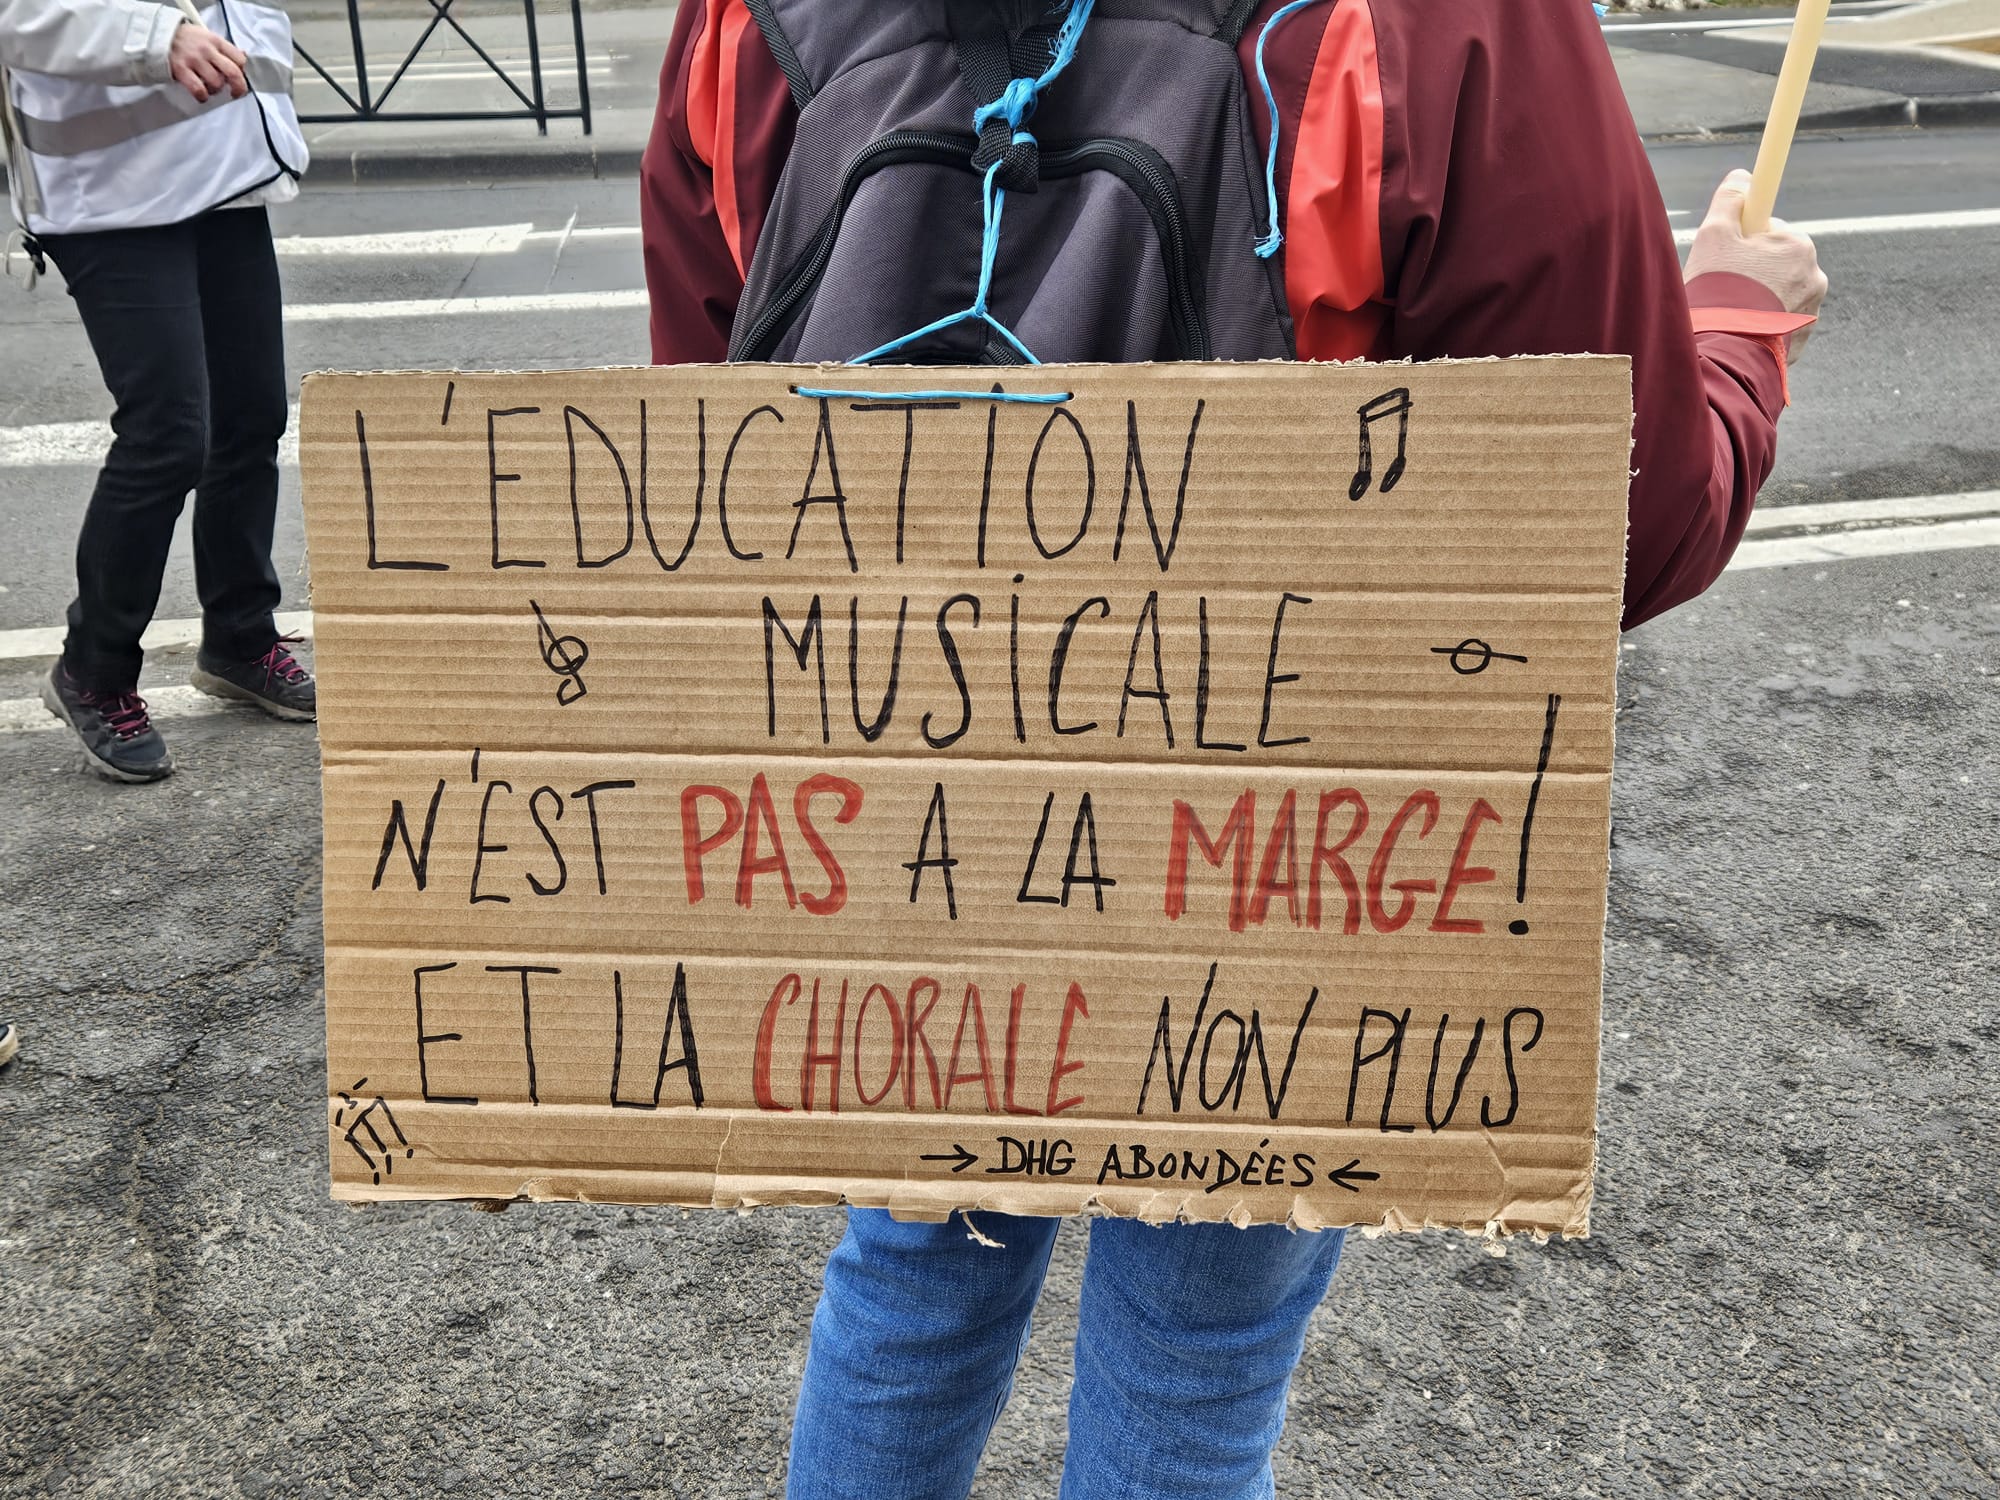 L'EDUCATION
MUSICALE
N'EST PAS A LA MARGE!
ET LA CHORALE NON PLUS
→ DHG ABONDÉES ←